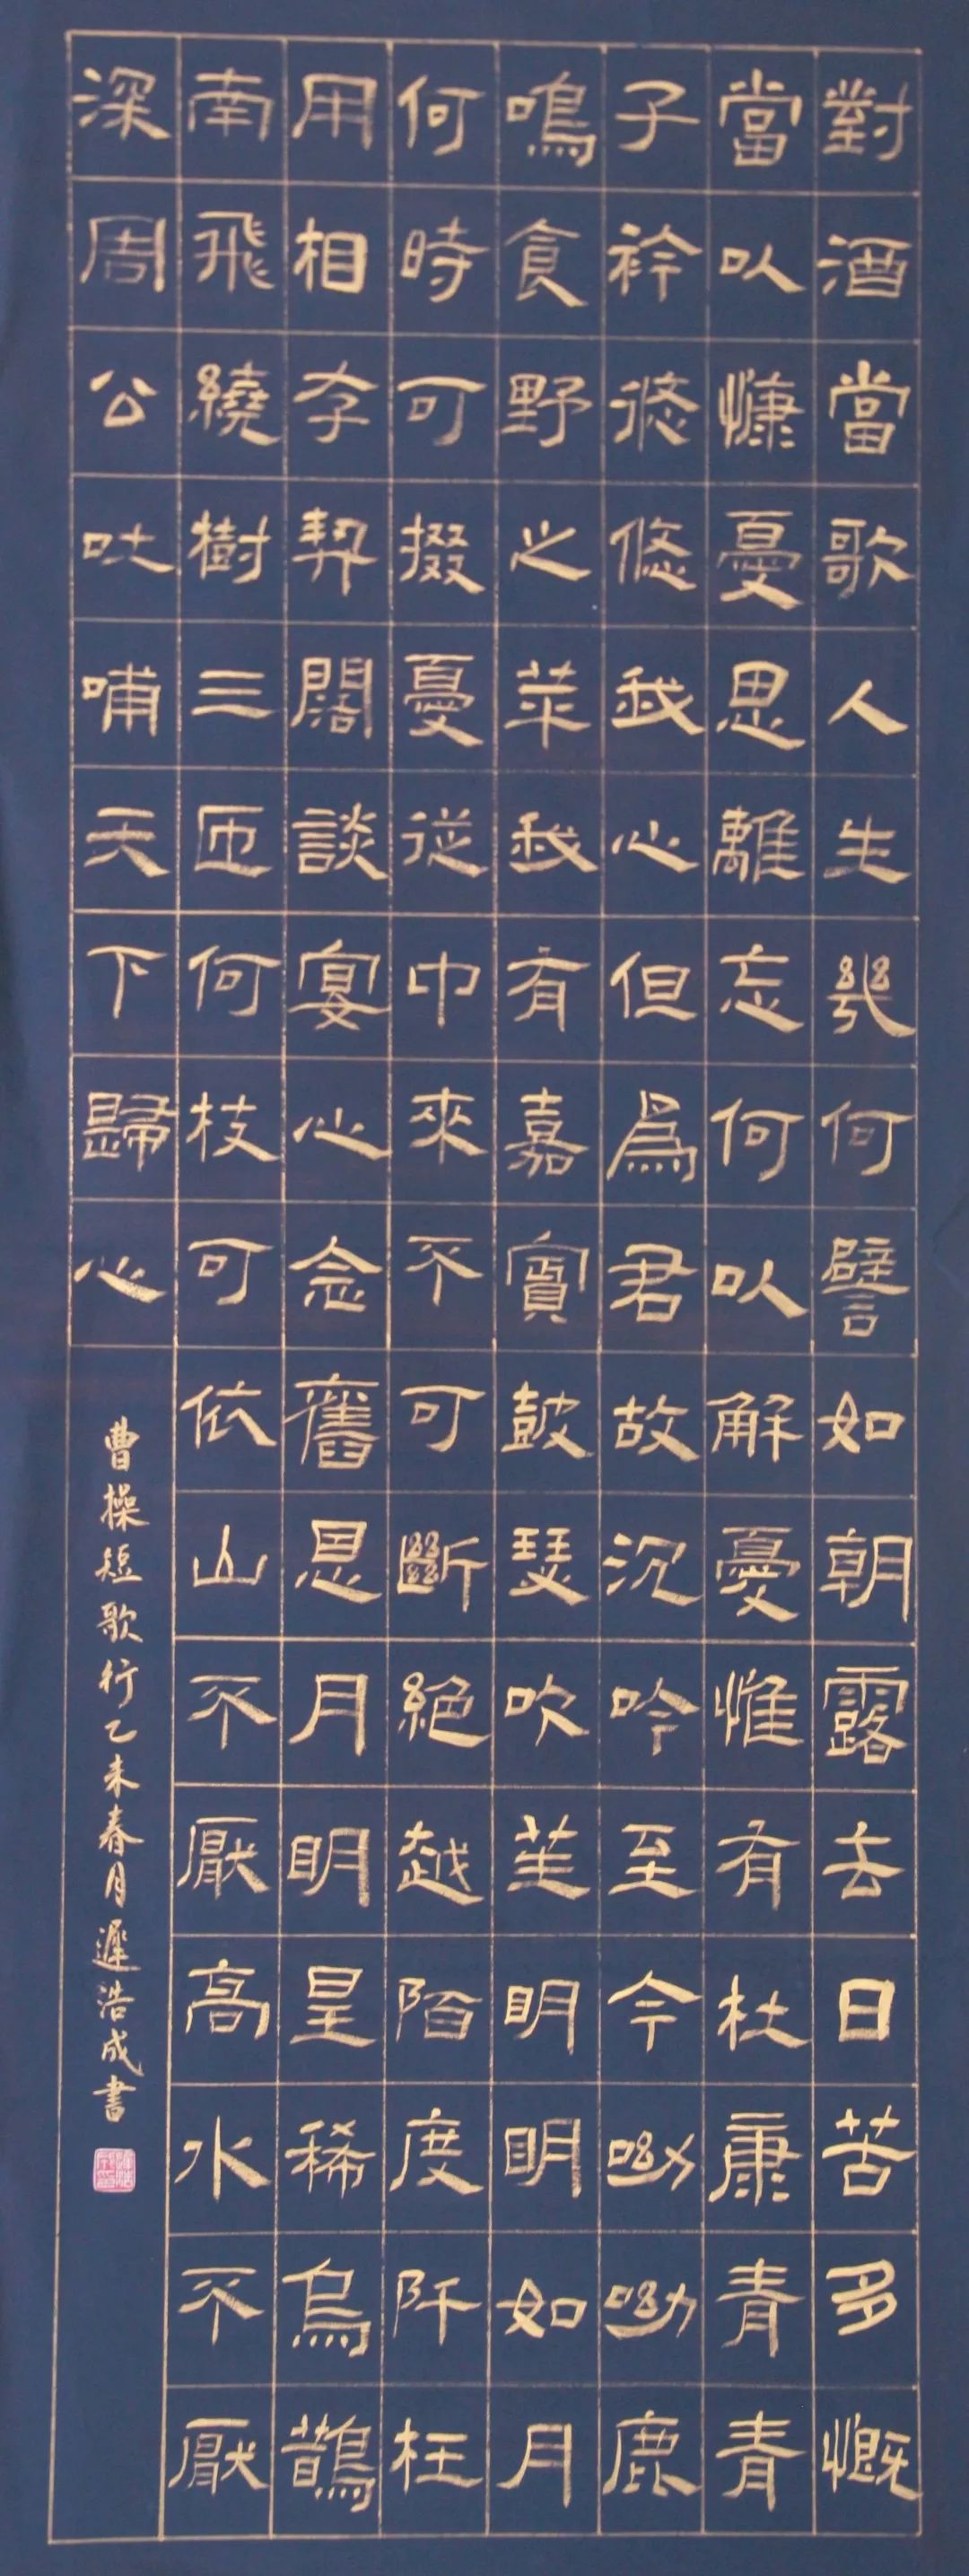 對酒當歌人生幾何譬如朝露去日苦多慨
當以慷憂思離忘何以解憂惟有杜康青青
子衿悠悠我心但爲君故沉吟至今呦呦鹿
鳴食野之苹我有嘉賓鼓瑟吹笙明明如月
何時可掇憂從中來不可斷絕越陌度阡枉
用相存契闊談宴心念舊恩月明星稀烏鵲
南飛繞樹三匝何枝可依山不厭高水不厭
深周公吐哺天下歸心
曹操短歌行乙未春月遲浩成書